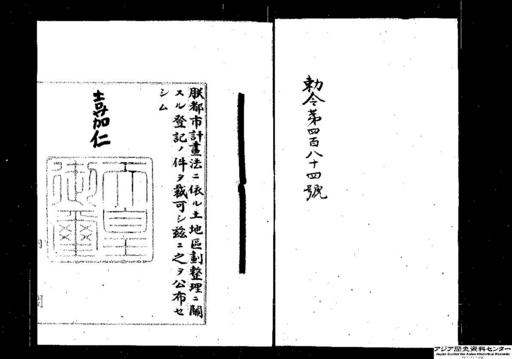 勅令第四百八十四號
朕都市計畫法ニ依ル土地區劃整理ニ關
スル登記ノ件ヲ裁可シ茲ニ之ヲ公布セ
シム
嘉仁
天皇
御璽
アジア歴史資料センター
Japan Center for Asian Historical Records